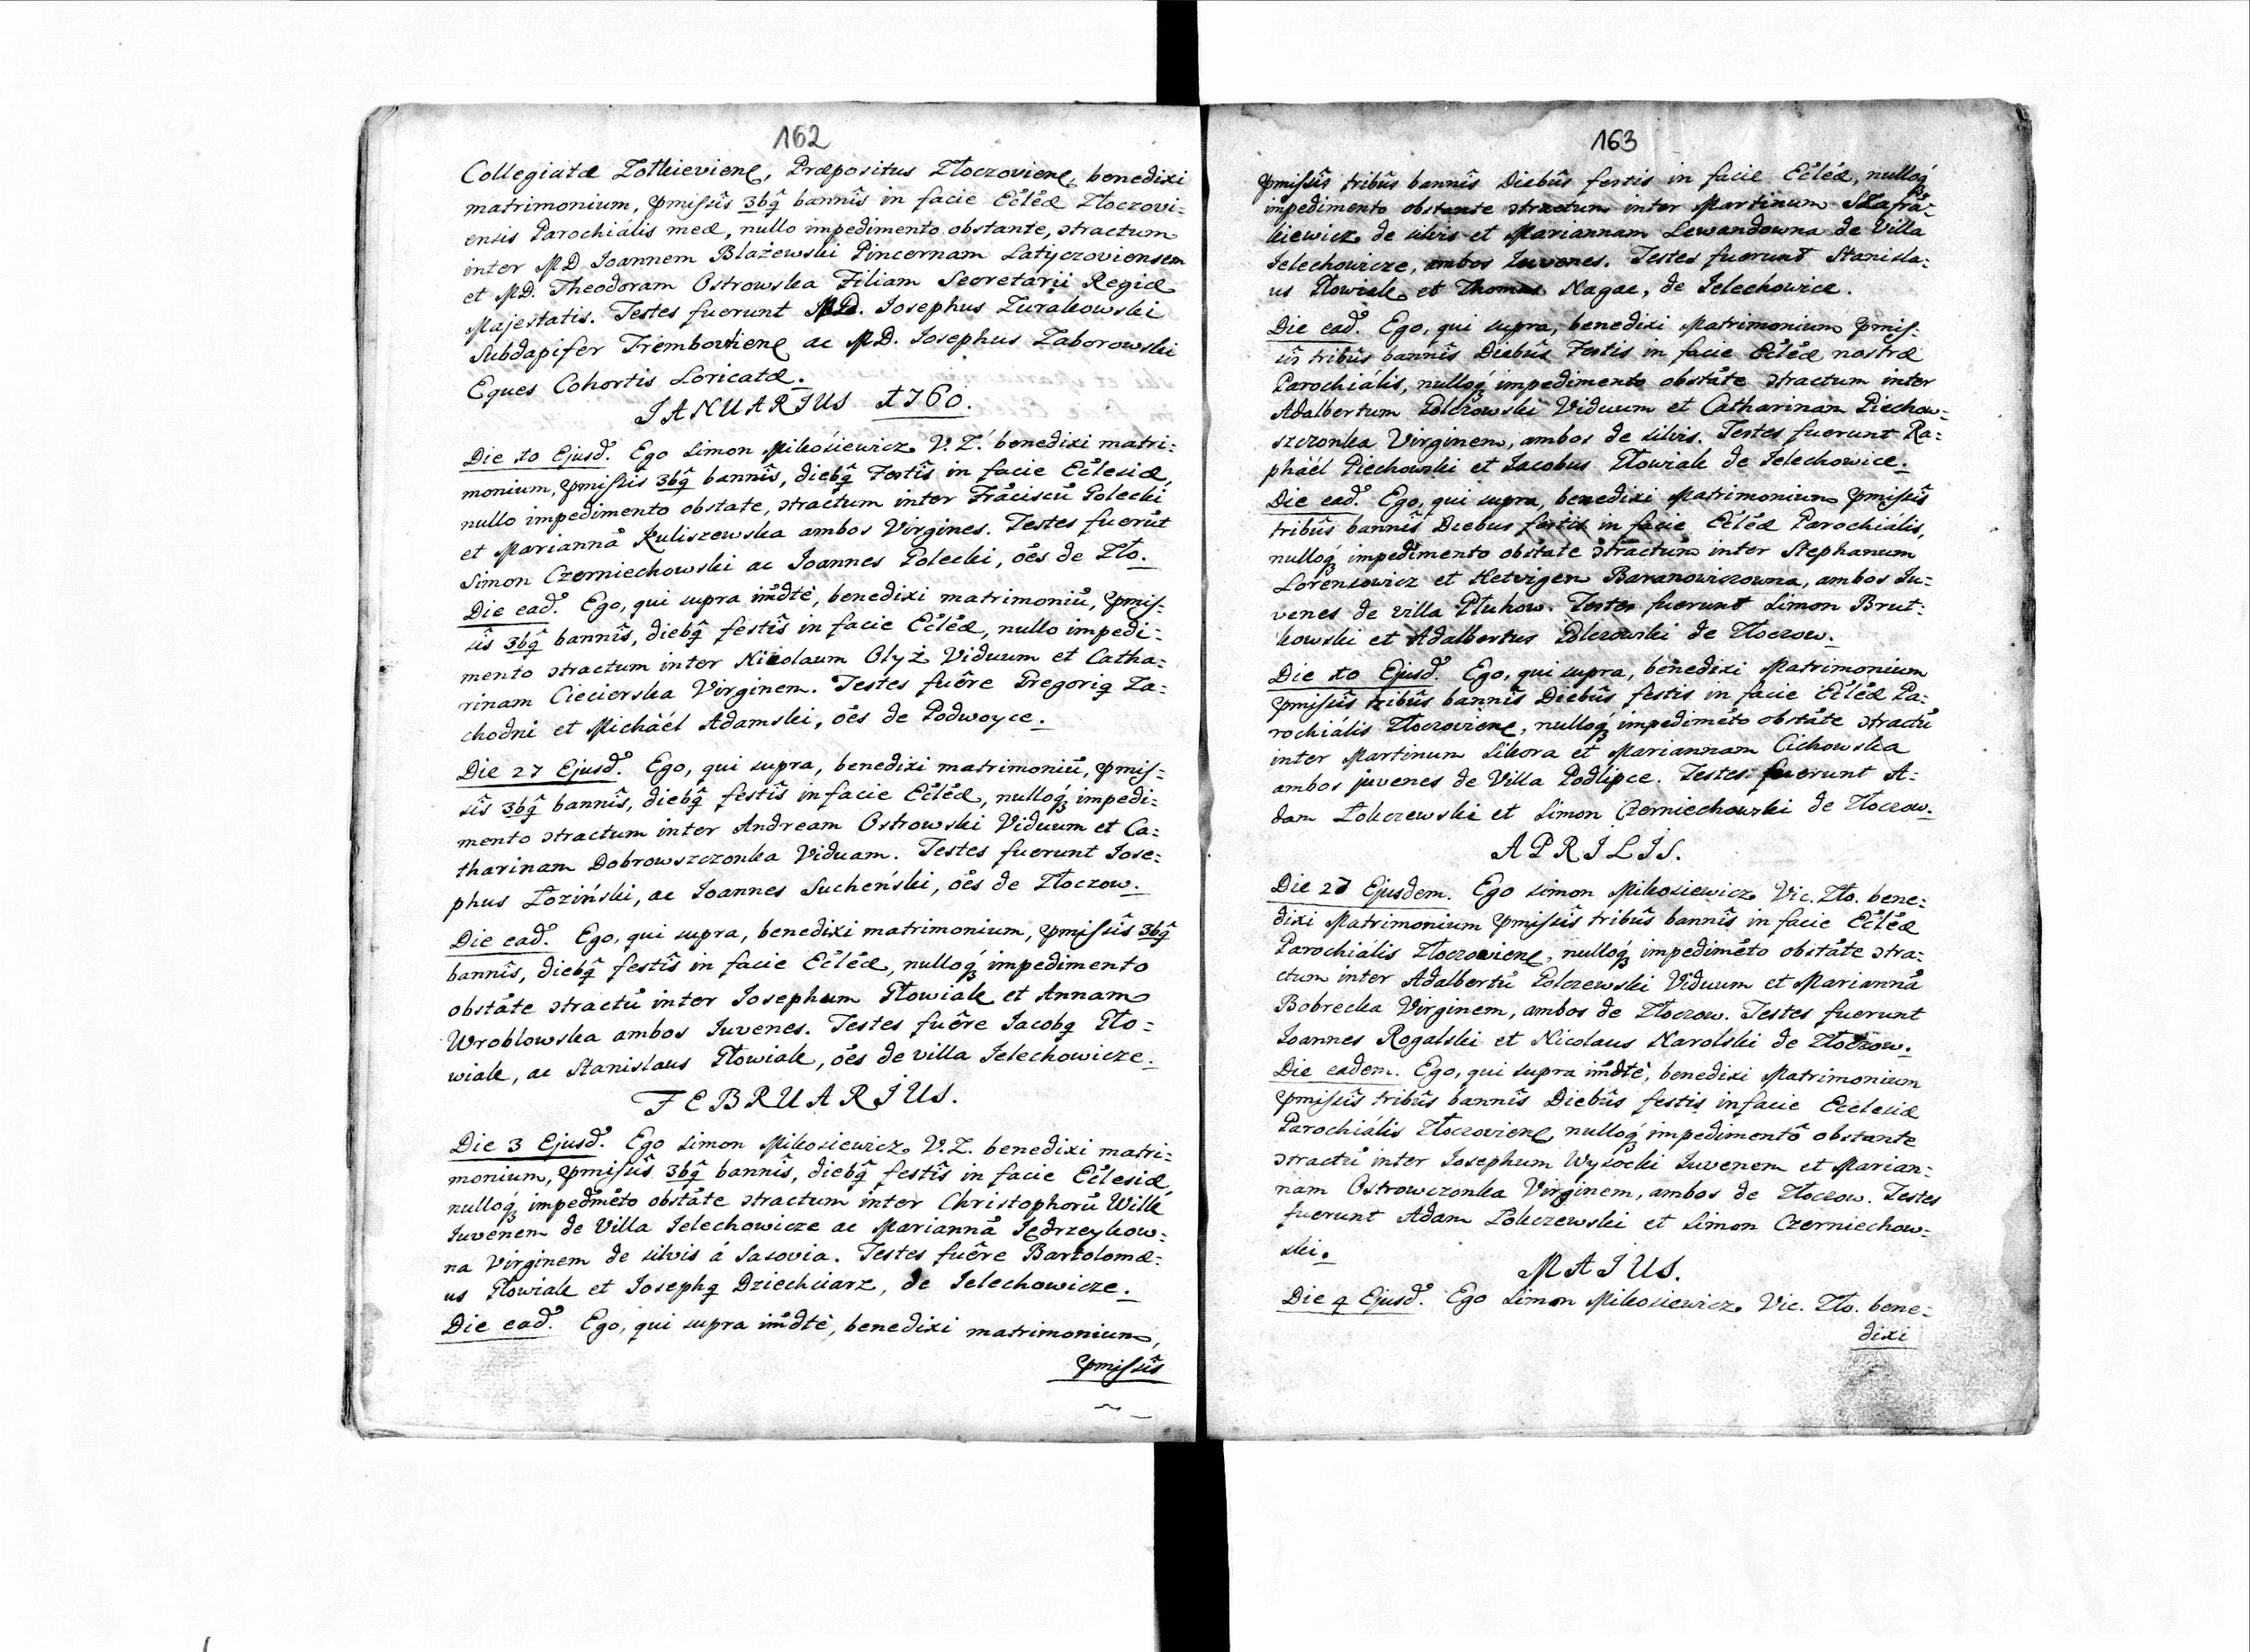 162
Collegiatæ Zołkievienẽ, Præpositus Złoczovienẽ, benedixi
matrimonium, pmissis 3bq̃ bannis in facie Ecłeæ Złoczovi=
ensis Parochiális meæ, nullo impedimento obstante, ɔtractum
inter MD Joannem Błażewski Pincernam Latyczoviensem
et MD. Theodoram Ostrowska Filiam Secretarii Regiæ
Majestatis. Testes fuerunt MD. Josephus Zurakowski
Subdapifer Trembovlienẽ ac MD. Josephus Zaborowski
Eques Cohortis Loricatæ.
JANUARJUS 1760.
Die 10 Ejusd. Ego Simon Mikosiewicz V. Z. benedixi matri=
monium, pmissis 3bq̃ bannis, diebq̃ Festis in facie Ecclesiæ,
nullo impedimento obstate, ɔtractum inter Frãciscũ Golecki
et Mariannã Kuliszewska ambos Virgines. Testes fuerũt
Simon Czerniechowski ac Joannes Golecki, oẽs de Zło.
Die ead. Ego, qui supra im̃dtè, benedixi matrimoniũ, pmis-
sis 3bq̃ bannis, diebq̃ festis in facie Ecłeæ, nullo impedi=
mento ɔtractum inter Nicolaum Olyż Viduum et Catha=
rinam Ciecierska Virginem. Testes fuêre Gregoriq Za=
chodni et Michàél Adamski, oẽs de Podwoyce.
Die 27 Ejusd. Ego, qui supra, benedixi matrimoniũ, pmis=
sis 3bq̃ bannis, diebq̃ festis in facie Ecłeæ, nulloq́ impedi=
mento ɔtractum inter Andream Ostrowski Viduum et Ca=
tharinam Dobrowszczonka Viduam. Testes fuerunt Jose=
phus Łoziński, ac Joannes Sucheński, oẽs de Złoczow.
Die ead. Ego, qui supra, benedixi matrimonium, pmissis 3bq̃
bannis, diebq̃ festis in facie Ecłeæ, nulloq́ impedimento
obstãte ɔtractũ inter Josephum Głowiak et Annam
Wroblowska ambos Juvenes. Testes fuêre Jacobq Gło=
wiak, ac Stanislaus Głowiak, oẽs de villa Jelechowicze.
FEBRUARJUS.
Die 3 Ejusd. Ego Simon Mikosiewicz V. Z. benedixi matri=
monium, pmissis 3bq̃ bannis, diebq̃ festis in facie Ecłesiæ,
nulloq́ impedimẽto obstãte ɔtractum inter Christophorũ Wilk
Juvenem de Villa Jelechowicze ac Mariannã Jędrzeykow=
na Virginem de silvis á Sasovia. Testes fuêre Bartolomæ=
us Głowiak et Josephq Dziechciarz, de Jelechowicze.
Die ead. Ego, qui supra im̃dtè, benedixi matrimonium,
pmissis
163
pmissis tribus bannis Diebus festis in facie Ecłeæ, nulloq́
impedimento obstante ɔtractum inter Martinum Szafrã=
kiewicz de silvis et Mariannam Lewandowna de Villa
Jelechowicze, ambos Juvenes. Testes fuerunt Stanisla=
us Głowiak et Thomas Nagac, de Jelechowice.
Die ead. Ego, qui supra, benedixi Matrimonium pmis=
sis tribus bannis Diebus Festis in facie Ecłeæ nostræ
Parochiális, nulloq́ impedimento obstãte ɔtractum inter
Adalbertum Polczowski Viduum et Catharinam Piechow=
szczonka Virginem, ambos de silvis. Testes fuerunt Ra=
phàél Piechowski et Jacobus Głowiak de Jelechowice.
Die ead. Ego, qui supra, benedixi Matrimonium pmissis
tribus bannis Diebus festis in facie Ecłeæ Parochiális,
nulloq́ impedimento obstãte ɔtractum inter Stephanum
Lorencowicz et Hetvigen Baranowiczowna, ambos Ju=
venes de villa Płuhow. Testes fuerunt Simon Brut=
kowski et Adalbertus Polczowski de Złoczow.
Die 10 Ejusd. Ego, qui supra, benedixi Matrimonium
pmissis tribus bannis Diebus festis in facie Ecłeæ Pa=
rochiális Złoczovienẽ, nulloq́ impedimẽto obstãte ɔtractũ
inter Martinum Sikora et Mariannam Cichowska
ambos juvenes de Villa Podlipce. Testes fuerunt A=
dam Łokczewski et Simon Czerniechowski de Złoczow.
APRJLJS.
Die 27 Ejusdem. Ego Simon Mikosiewicz Vic. Zło. bene=
dixi Matrimonium pmissis tribus bannis in facie Ecłeæ
Parochiális Złoczovienẽ, nulloq́ impedimẽto obstãte ɔtra=
ctum inter Adalbertũ Polczewski Viduum et Mariannã
Bobrecka Virginem, ambos de Złoczow. Testes fuerunt
Joannes Rogalski et Nicolaus Narolski de Złoczow.
Die eadem. Ego, qui supra im̃dtè, benedixi Matrimonium
pmissis tribus bannis Diebus festis in facie Ecclesiæ
Parochiális Złoczovienẽ, nulloq́ impedimentô obstante
ɔtractũ inter Josephum Wysocki Juvenem et Marian=
nam Ostrowczonka Virginem, ambos de Złoczow. Testes
fuerunt Adam Łokczewski et Simon Czerniechow=
ski.
MAJUS.
Die 4 Ejusd. Ego Simon Mikosiewicz Vic. Zło. bene=
dixi